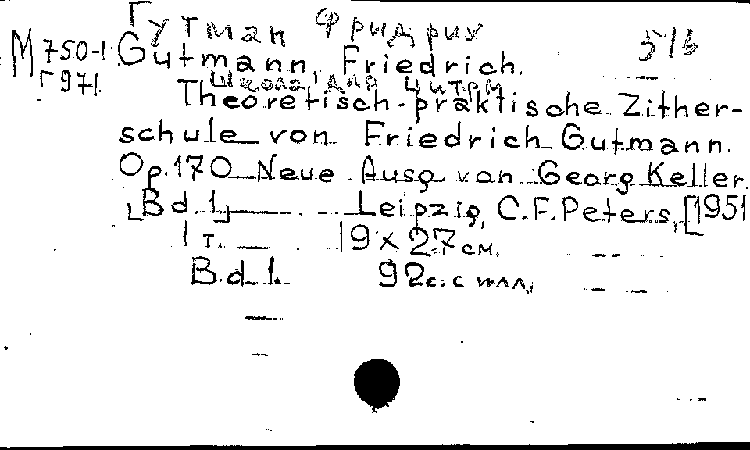 Гутман Фридрих
М 750-1 Gutmann, Friedrich. 516
Г 971
Школа для цитры
Theoretisch-praktische Zither-
schule von Friedrich Gutmann.
Op. 170 Neue Ausg von Georg Keller.
[Bd. 1.] Leipzig, C.F. Peters, [1951
1 т. 19 x 27 см.
Bd. 1. 92 с. с илл.